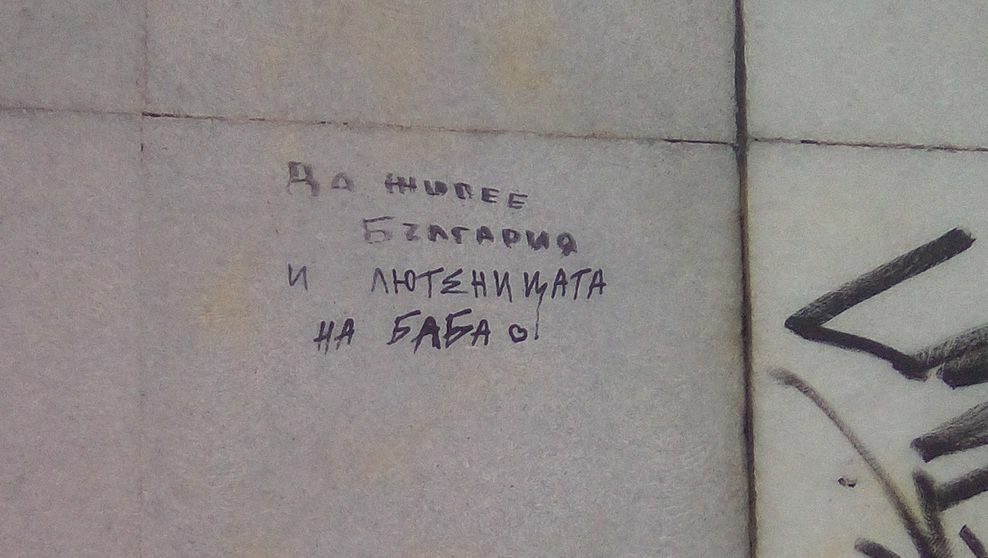 ДА ЖИВЕЕ
БЪЛГАРИЯ
И ЛЮТЕНИЦАТА
НА БАБА